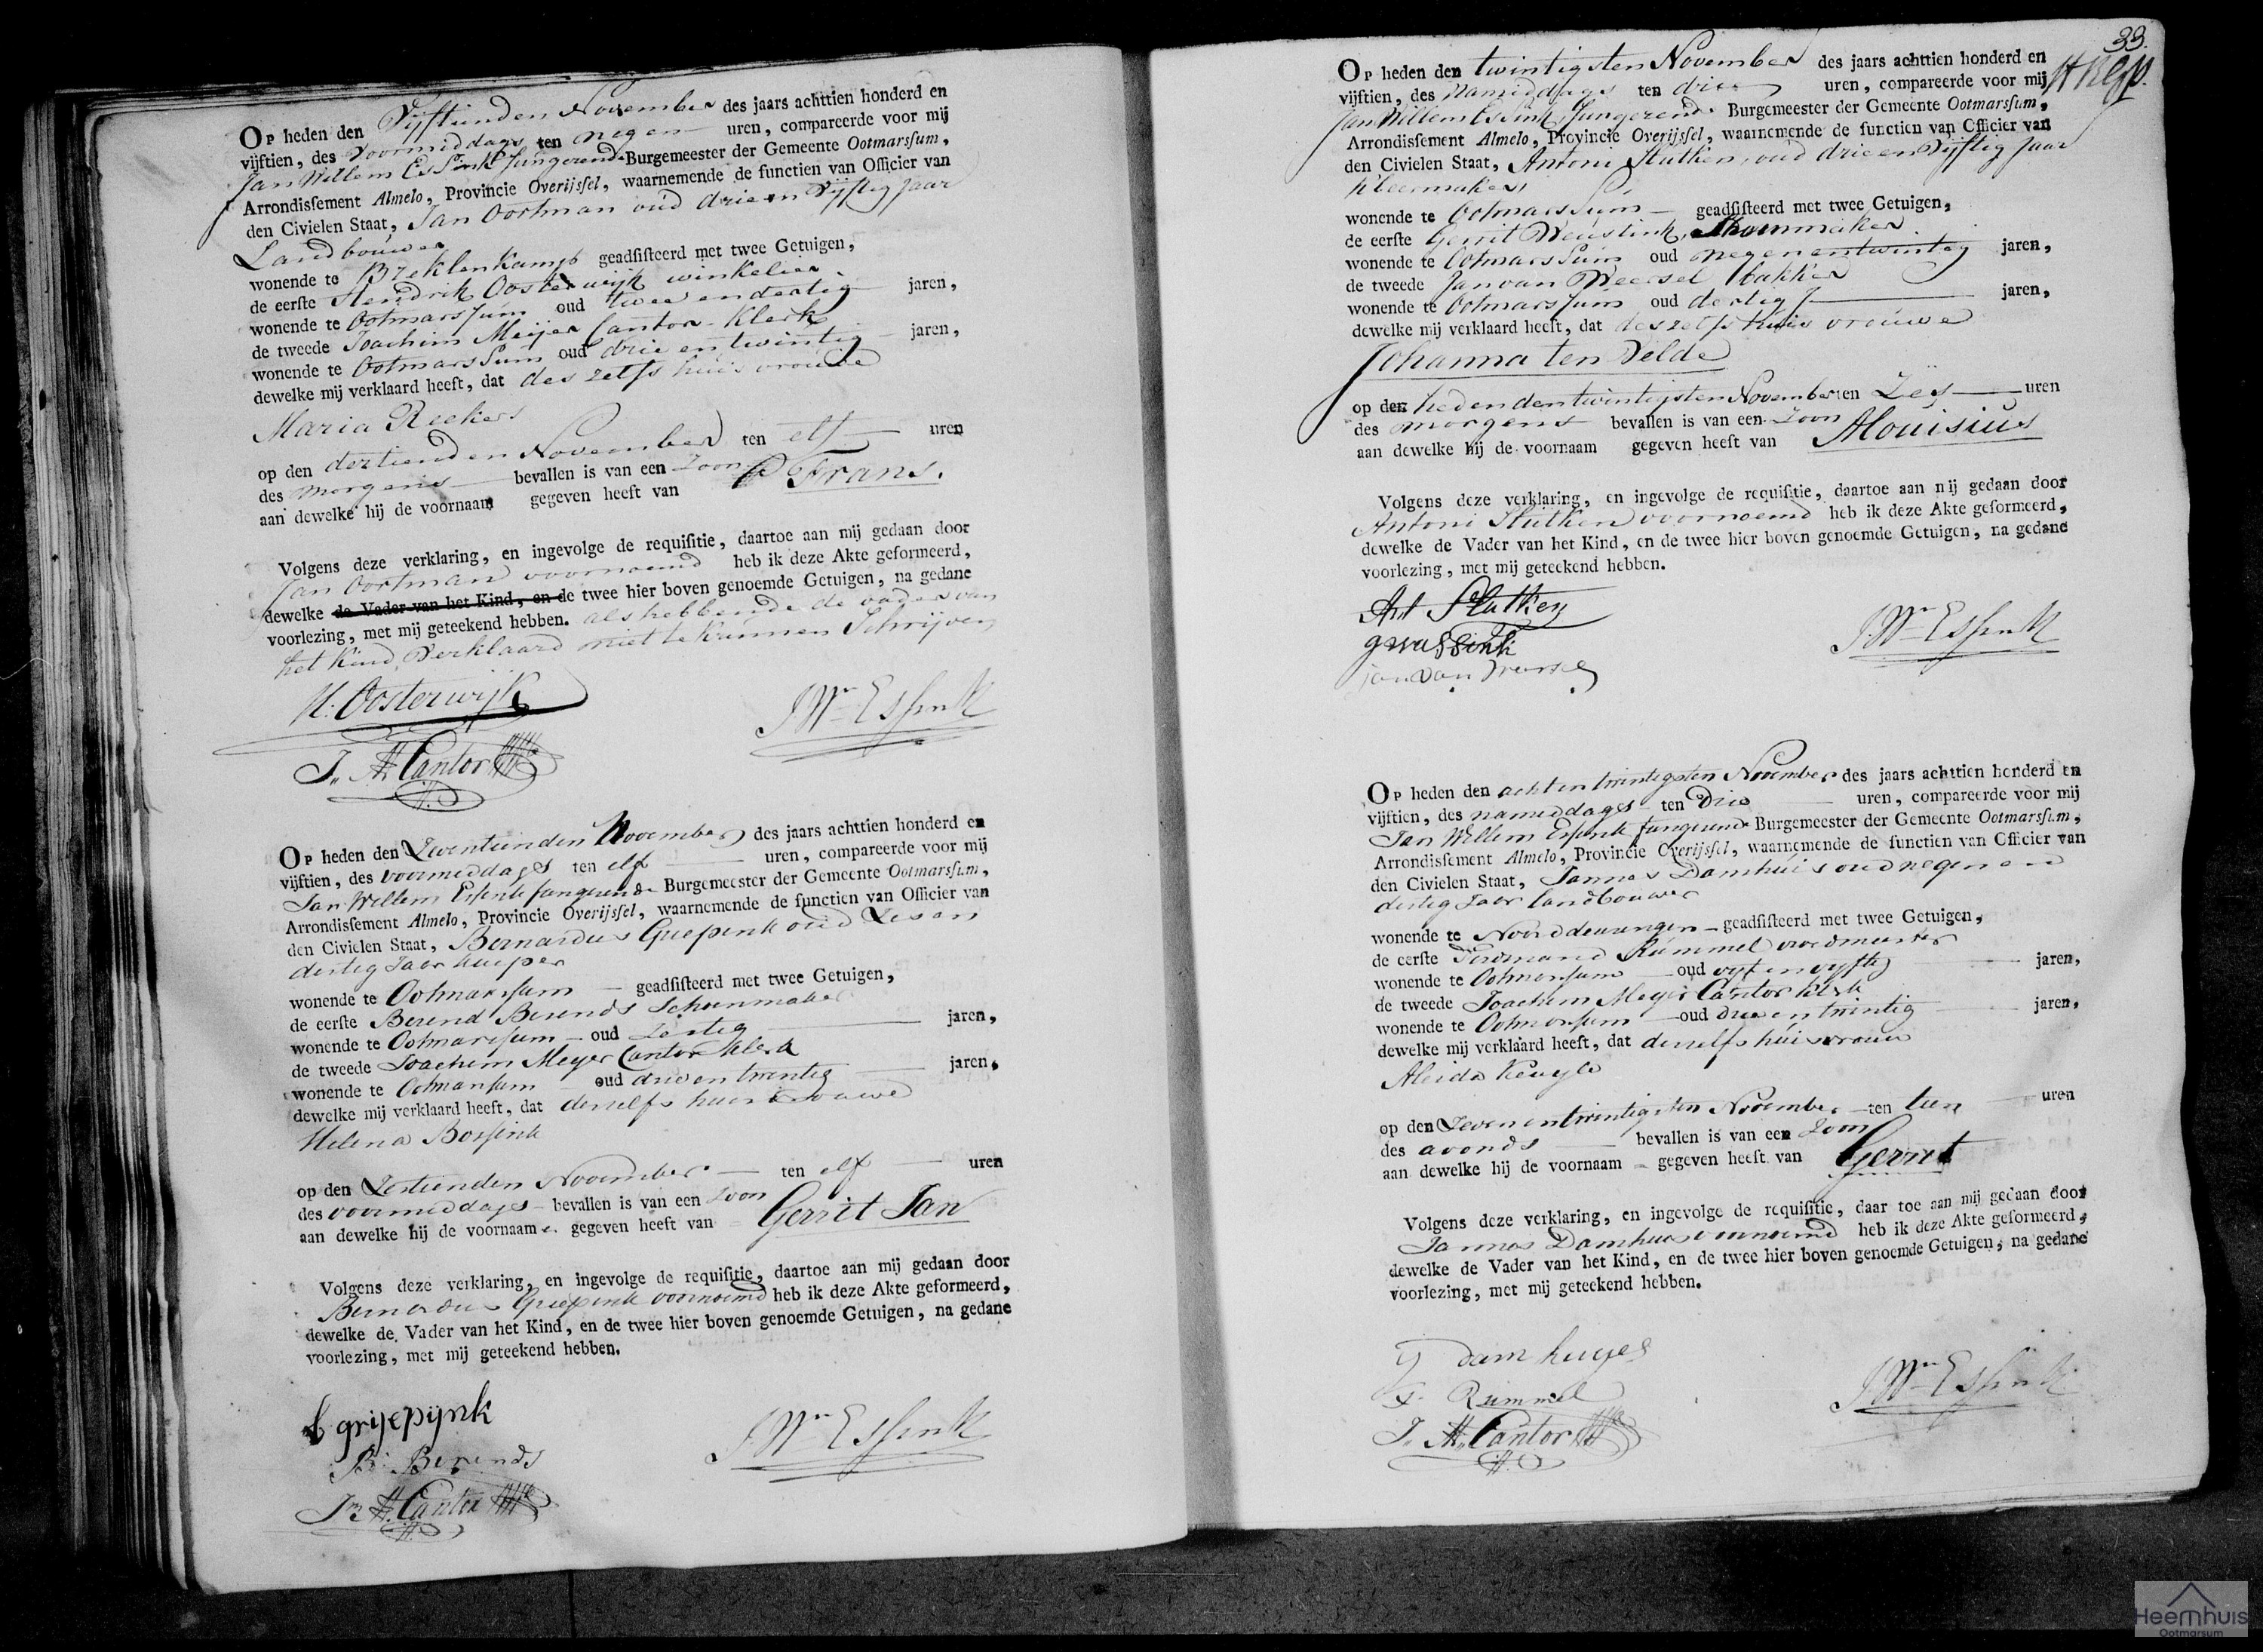 Op heden den Vijftienden November des jaars achttien honderd en
vijftien, des voormiddags ten negen uren, compareerde voor mij
Jan Willem Essink fungerende Burgemeester der Gemeente Ootmarssum,
Arrondissement Almelo, Provincie Overijssel, waarnemende de functien van Officier van
den Civielen Staat, Jan Oortman oud drie en Vijftig Jaar
Landbouwer
wonende te Breklenkamp geadsisteerd met twee Getuigen,
de eerste Hendrik Oosterwijk winkelier
wonende te Ootmarssum oud twee en dertig jaren,
de tweede Joachim Meijer Cantor-Klerk
wonende te Ootmarssum oud drie en twintig jaren,
dewelke mij verklaard heeft, dat deszelfs huisvrouwe
Maria Reekers
op den dertienden November ten elf uren
des morgens bevallen is van een Zoon
aan dewelke hij de voornaam gegeven heeft van Frans.
Volgens deze verklaring, en ingevolge de requisitie, daartoe aan mij gedaan door
Jan Oortman voornoemd heb ik deze Akte geformeerd,
dewelke de Vader van het Kind, en de twee hier boven genoemde Getuigen, na gedane
voorlezing, met mij geteekend hebben. als hebbende de vader van
het Kind Verklaard niet te Kunnen Schrijven
H. Oosterwijk
JWm Essink
J. M. Cantor
Op heden den Zeventienden November des jaars achttien honderd en
vijftien, des voormiddags ten elf uren, compareerde voor mij
Jan Willem Essink fungerende Burgemeester der Gemeente Ootmarssum,
Arrondissement Almelo, Provincie Overijssel, waarnemende de functien van Officier van
den Civielen Staat, Bernardus Griepink oud Zes en
dertig Jaar kuiper
wonende te Ootmarssum geadsisteerd met twee Getuigen,
de eerste Berend Berends Schoenmaker
wonende te Ootmarssum oud Zestig jaren,
de tweede Joachim Meyer Cantor klerk
wonende te Ootmarssum oud drie en twintig jaren,
dewelke mij verklaard heeft, dat derzelfs huisvrouwe
Helena Bossink
op den Zestienden November ten elf uren
des voormiddags bevallen is van een Zoon
aan dewelke hij de voornaamen gegeven heeft van Gerrit Jan
Volgens deze verklaring, en ingevolge de requisitie, daartoe aan mij gedaan door
Bernardus Griepink voornoemd heb ik deze Akte geformeerd,
dewelke de Vader van het Kind, en de twee hier boven genoemde Getuigen, na gedane
voorlezing, met mij geteekend hebben.
b grijepijnk
B. Berends
JWm Essink
J. M. Cantor
33.
Op heden den twintigsten November des jaars achttien honderd en
vijftien, des Namiddags ten drie uren, compareerde voor mij
Jan Willem Essink, fungerende Burgemeester der Gemeente Ootmarssum,
Arrondissement Almelo, Provincie Overijssel, waarnemende de functien van Officier van
den Civielen Staat, Antoni Slutken, oud drie en Vijftig Jaar
kleermaker
wonende te Ootmarssum geadsisteerd met twee Getuigen,
de eerste Gerrit Weustink, Schoenmaker
wonende te Ootmarssum oud negenentwintig jaren,
de tweede Jan van Weersel bakker
wonende te Ootmarssum oud dertig jaren,
dewelke mij verklaard heeft, dat deszelfs huisvrouwe
Johanna ten Velde
op den heden den twintigsten November ten Zes uren
des morgens bevallen is van een Zoon
aan dewelke hij de voornaam gegeven heeft van Alouisius
Volgens deze verklaring, en ingevolge de requisitie, daartoe aan mij gedaan door
Antoni Slutken voornoemd heb ik deze Akte geformeerd,
dewelke de Vader van het Kind, en de twee hier boven genoemde Getuigen, na gedane
voorlezing, met mij geteekend hebben.
Ant Slutken
JWm Essink
jan van
Op heden den achtentwintigsten November des jaars achttien honderd en
vijftien, des namiddags ten Drie uren, compareerde voor mij
Jan Willem Essink fungerende Burgemeester der Gemeente Ootmarssum,
Arrondissement Almelo, Provincie Overijssel, waarnemende de functien van Officier van
den Civielen Staat, Jannes Damhuis oud negen en
dertig Jaar landbouwer
wonende te Noorddeurningen geadsisteerd met twee Getuigen,
de eerste Ferdinand Rummel vroedmeester
wonende te Ootmarssum oud vyf en vyftig jaren,
de tweede Joachim Meyer Cantor klerk
wonende te Ootmarssum oud drie en twintig jaren,
dewelke mij verklaard heeft, dat derzelfs huisvrouw
Aleida
op den Zevenentwintigsten November ten tien uren
des avonds bevallen is van een Zoon
aan dewelke hij de voornaam gegeven heeft van Gerrit
Volgens deze verklaring, en ingevolge de requisitie, daar toe aan mij gedaan door
Jannes Damhuis voornoemd heb ik deze Akte geformeerd,
dewelke de Vader van het Kind, en de twee hier boven genoemde Getuigen, na gedane
voorlezing, met mij geteekend hebben.
J damhuyes
F. Rummel
JWm Essink
J. M. Cantor
Heemhuis
Ootmarsum